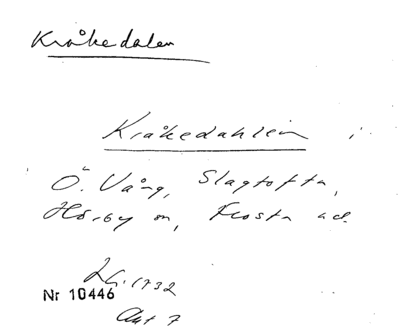 Kråkedalen
Kråkedahlen i
Ö. Vång, Slagtofta,
Hörby sn, Frosta hd.
LG. 1732
Nr 10446
Akt 7